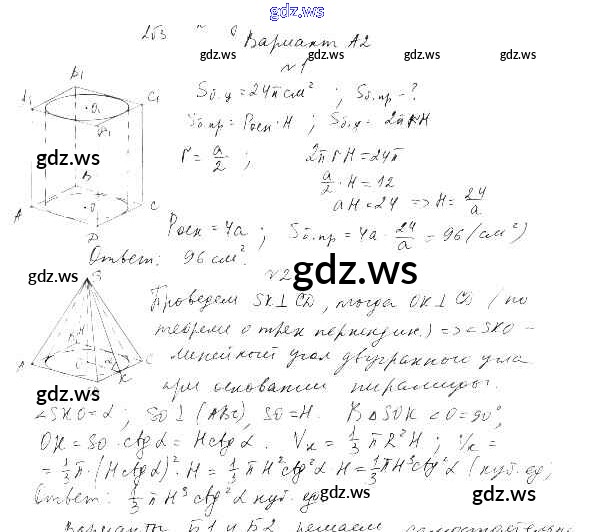 gdz.ws
Вариант А2
gdz.ws gdz.ws gdz.ws
№1
B1
A1 C1
O1
D1
Sб.ц = 24π см² ; Sб.пр - ?
Sб.пр = Pосн · H ; Sб.ц = 2πrH
gdz.ws
r = a/2 ; 2πrH = 24π
a/2 · H = 12
aH = 24 => H = 24/a
B
A O C
D
Pосн = 4a ; Sб.пр = 4a · 24/a = 96 (см²)
Ответ: 96 см².
gdz.ws gdz.ws gdz.ws
№2
Проведем SK ⊥ CD, тогда OK ⊥ CD (по
теореме о трех перпендик.) => ∠SKO -
линейный угол двугранного угла
при основании пирамиды.
A H O C
K
gdz.ws gdz.ws gdz.ws
∠SKO = α ; SO ⊥ (ABC), SO = H. В △SOK ∠O = 90°,
OK = SO · ctg α = H ctg α. Vк = 1/3 πR²H ; Vк =
= 1/3 π · (H ctg α)² · H = 1/3 πH² ctg² α · H = 1/3 πH³ ctg² α (куб. ед)
Ответ: 1/3 πH³ ctg² α куб. ед
gdz.ws gdz.ws gdz.ws
Варианты Б1 и Б2 решаем самостоятельно